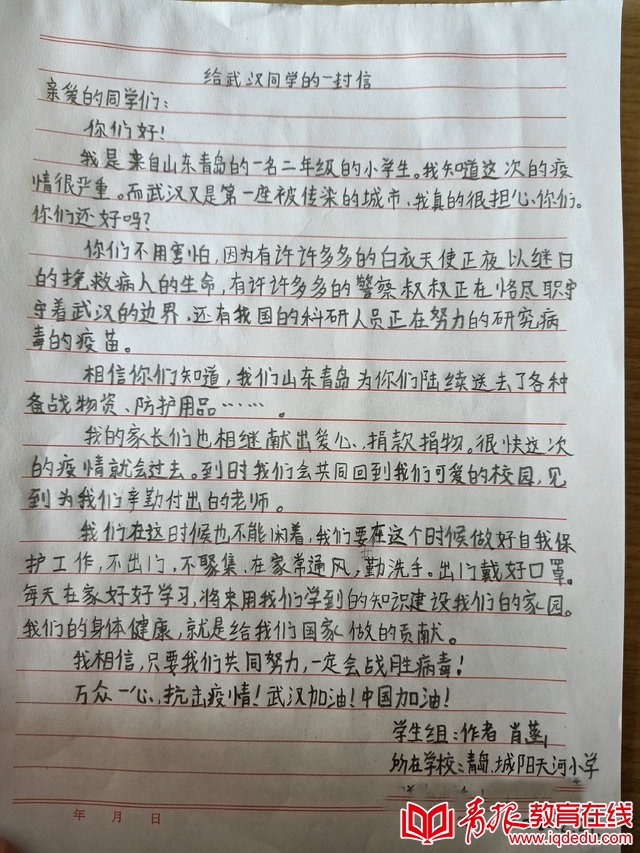 给武汉同学的一封信
亲爱的同学们：
你们好！
我是来自山东青岛的一名二年级的小学生。我知道这次的疫
情很严重。而武汉又是第一座被传染的城市、我真的很担心你们。
你们还好吗？
你们不用害怕，因为有许许多多的白衣天使正夜以继日
的挽救病人的生命，有许许多多的警察叔叔正在恪尽职守
守着武汉的边界、还有我国的科研人员正在努力的研究病
毒的疫苗。
相信你们知道，我们山东青岛为你们陆续送去了各种
备战物资、防护用品……。
我的家长们也相继献出爱心、捐款捐物。很快这次
的疫情就会过去。到时我们会共同回到我们可爱的校园，见
到为我们辛勤付出的老师。
我们在这时候也不能闲着，我们要在这个时候做好自我保
护工作，不出门，不聚集、在家常通风，勤洗手。出门戴好口罩。
每天在家好好学习，将来用我们学到的知识建设我们的家园。
我们的身体健康，就是给我们国家做的贡献。
我相信，只要我们共同努力，一定会战胜病毒！
万众一心、抗击疫情！武汉加油！中国加油！
学生组：作者 肖
所在学校：青岛城阳天河小学
年 月 日
青报教育在线
www.iqdedu.com